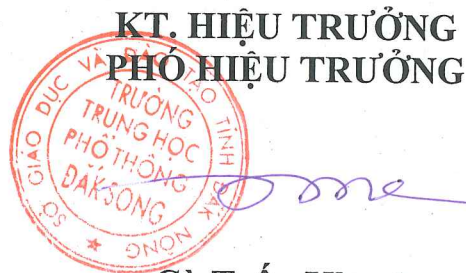 KT. HIỆU TRƯỞNG
PHÓ HIỆU TRƯỞNG
SỞ GIÁO DỤC VÀ ĐÀO TẠO TỈNH ĐẮK NÔNG
TRƯỜNG
TRUNG HỌC
PHỔ THÔNG
ĐẮK SONG